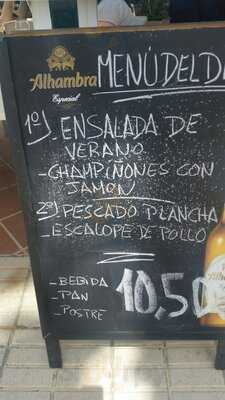 Alhambra
Especial
MENÚ DEL D
1º) - ENSALADA DE
VERANO
- CHAMPIÑONES CON
JAMON
2º) PESCADO PLANCHA
- ESCALOPE DE POLLO
- BEBIDA
- PAN
- POSTRE
10,50